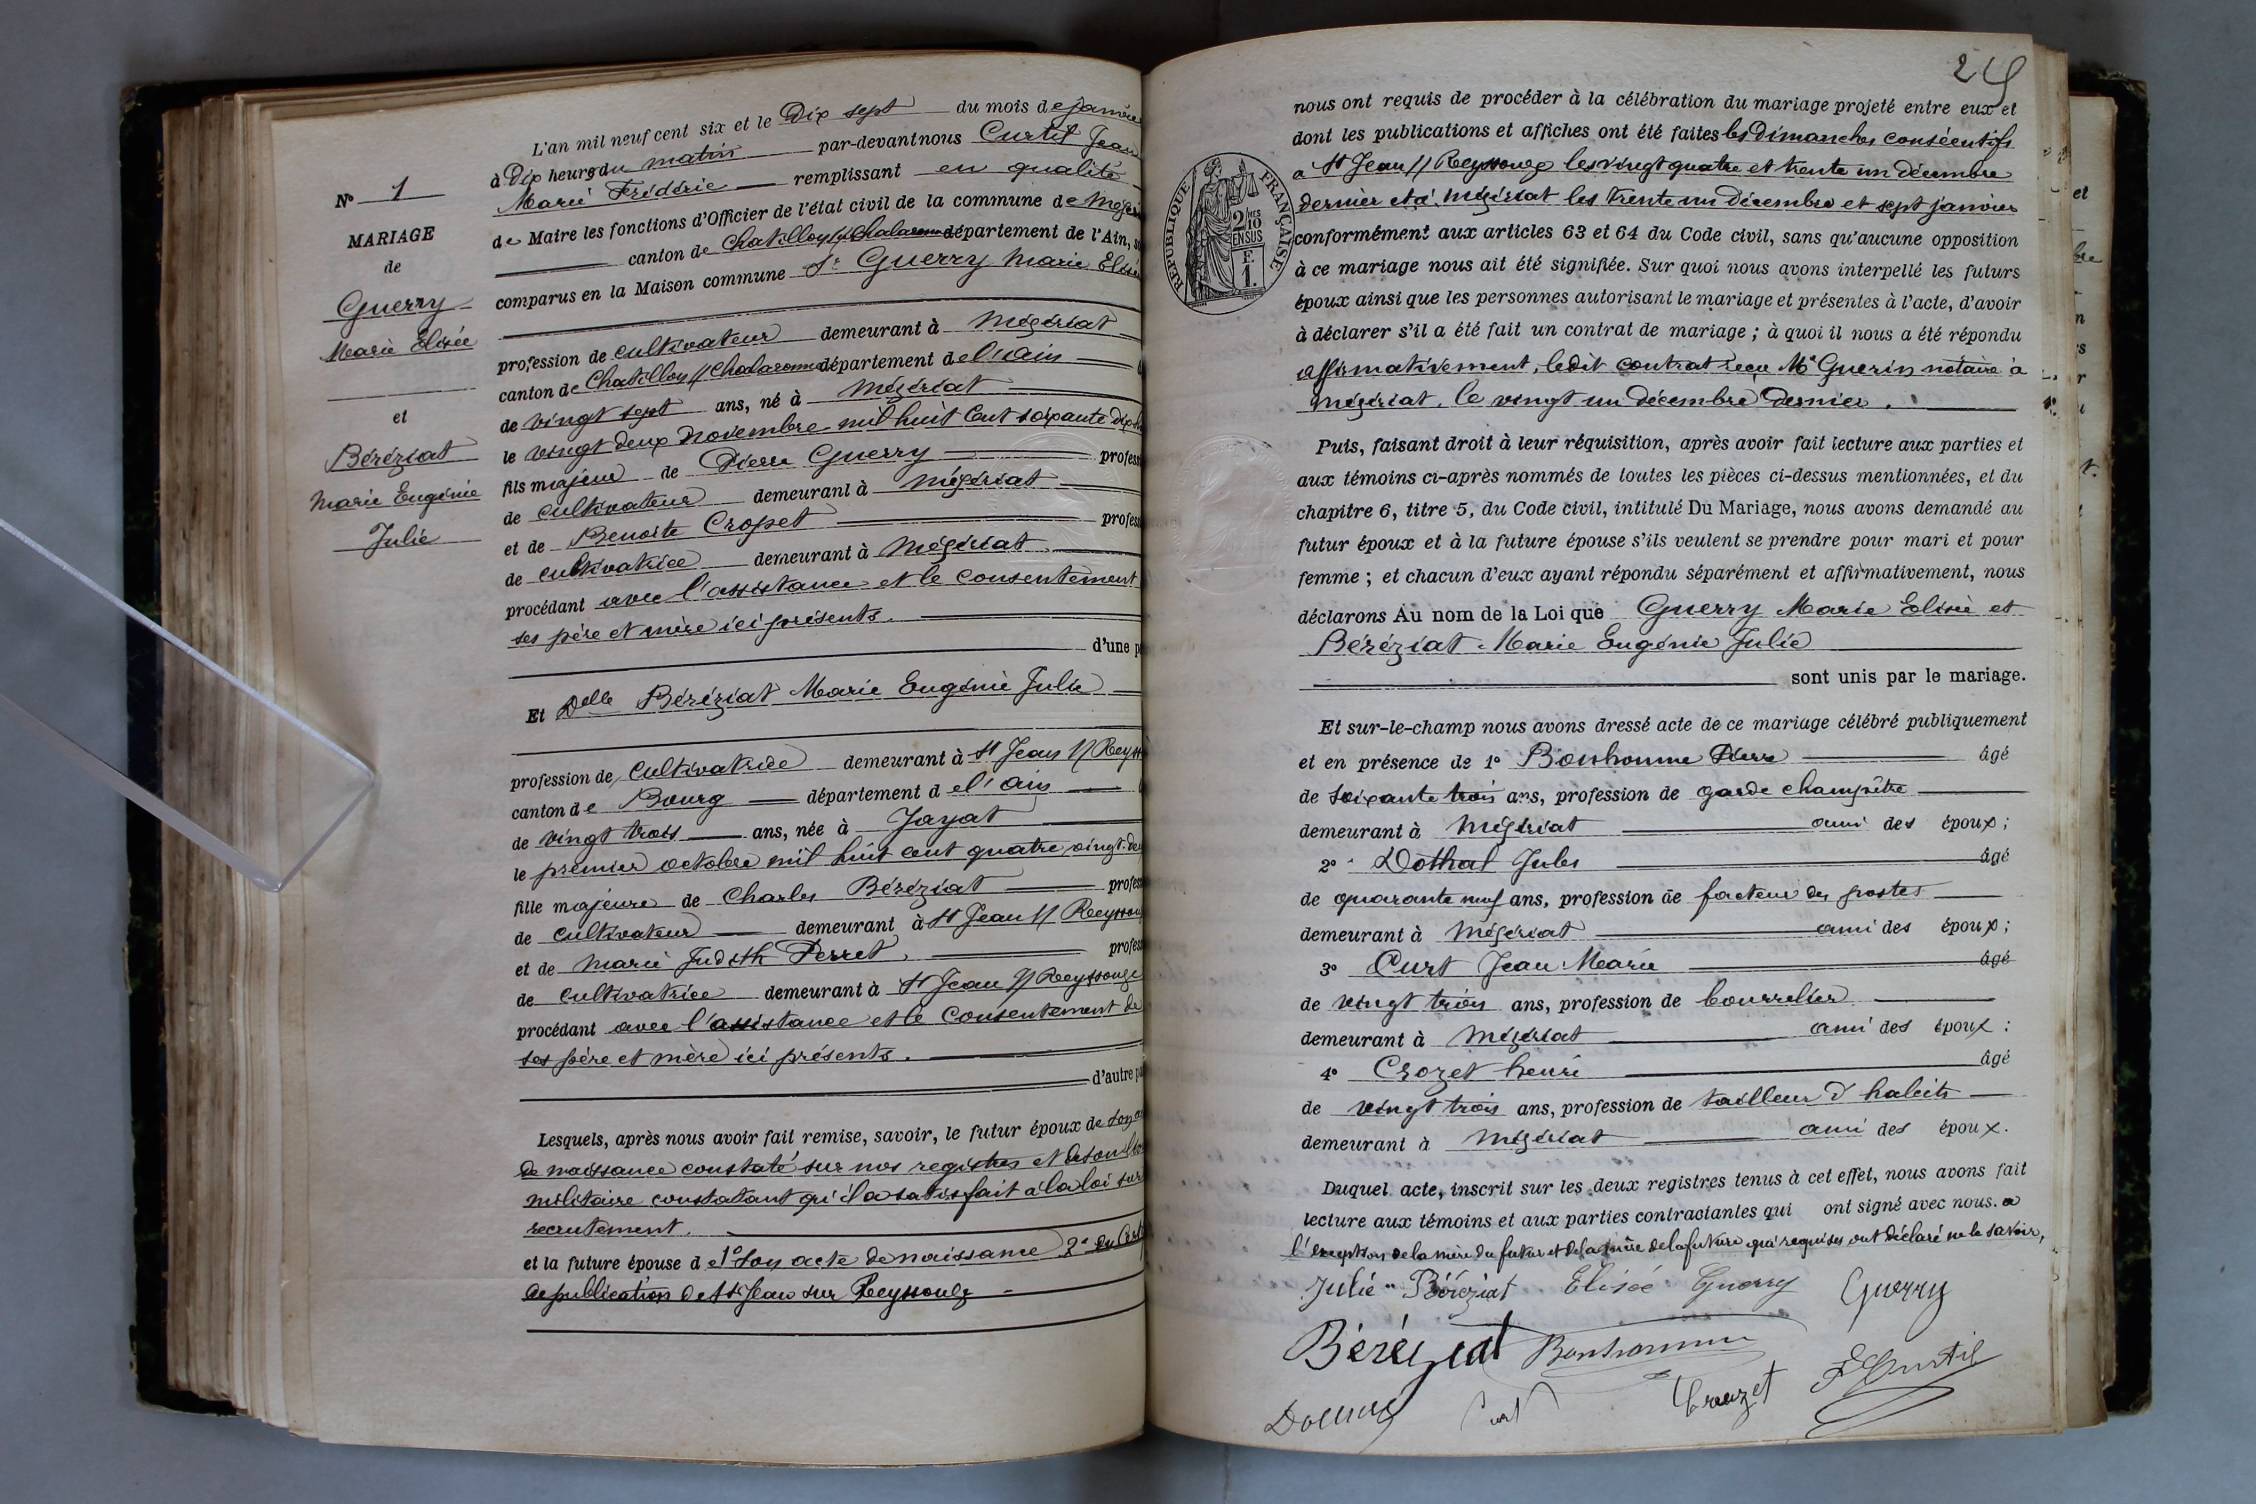 N° 1
MARIAGE
de
Guerry
Marie Elisée
et
Béréziat
Marie Eugénie
Julie
L'an mil neuf cent six et le Dix sept du mois de janvie
à Dix heures du matin par-devant nous Curtil Jean
Marie Frédéric remplissant en qualité
de Maire les fonctions d'Officier de l'état civil de la commune de Mézéri
canton de Chatillon s/ Chalaronne département de l'Ain, s
comparus en la Maison commune Sr Guerry Marie Elisé
profession de cultivateur demeurant à Mézériat
canton de Chatillon s/ Chalaronne département de l'Ain
de vingt sept ans, né à Mézériat
le vingt deux novembre mil huit cent soixante dix h
fils majeur de Pierre Guerry profess
de cultivateur demeurant à Mézériat
et de Benoite Cropet profess
de cultivatrice demeurant à Mézériat
procédant avec l'assistance et le consentement
ses père et mère ici présents.
d'une pa
Et Delle Béréziat Marie Eugénie Julie
profession de cultivatrice demeurant à St Jean s/ Reyss
canton de Bourg département de l'Ain
de vingt trois ans, née à Jayat
le premier octobre mil huit cent quatre vingt-de
fille majeure de Charles Béréziat profes
de cultivateur demeurant à St Jean s/ Reyssou
et de Marie Judith Perret profes
de cultivatrice demeurant à St Jean s/ Reyssouze
procédant avec l'assistance et le consentement de
ses père et mère ici présents.
d'autre pa
Lesquels, après nous avoir fait remise, savoir, le futur époux de son a
de naissance constaté sur nos registres et de son
militaire constatant qu'il a satisfait à la loi sur
recrutement.
et la future épouse de 1° son acte de naissance 2° du Cert
de publication de St Jean sur Reyssouze
24
nous ont requis de procéder à la célébration du mariage projeté entre eux et
dont les publications et affiches ont été faites les dimanches conséentifs
a St Jean s/ Reyssouze les vingt quatre et trente un décembre
dernier et à Mézériat les trente un Décembre et sept janvier
conformément aux articles 63 et 64 du Code civil, sans qu'aucune opposition
à ce mariage nous ait été signifiée. Sur quoi nous avons interpellé les futurs
époux ainsi que les personnes autorisant le mariage et présentes à l'acte, d'avoir
à déclarer s'il a été fait un contrat de mariage ; à quoi il nous a été répondu
affirmativement, ledit contrat reçu Me Guerin notaire à
Mézériat, le vingt un décembre dernier.
RÉPUBLIQUE FRANÇAISE
2/10 mes
EN SUS
F.
1.
Puis, faisant droit à leur réquisition, après avoir fait lecture aux parties et
aux témoins ci-après nommés de toutes les pièces ci-dessus mentionnées, et du
chapitre 6, titre 5, du Code civil, intitulé Du Mariage, nous avons demandé au
futur époux et à la future épouse s'ils veulent se prendre pour mari et pour
femme ; et chacun d'eux ayant répondu séparément et affirmativement, nous
déclarons Au nom de la Loi que Guerry Marie Elisée et
Béréziat Marie Eugénie Julie
sont unis par le mariage.
Et sur-le-champ nous avons dressé acte de ce mariage célébré publiquement
et en présence de 1° Bonhomme Pierre âgé
de soixante trois ans, profession de garde champêtre
demeurant à Mézériat ami des époux ;
2° Dothal Jules âgé
de quarante neuf ans, profession de facteur des postes
demeurant à Mézériat ami des époux ;
3° Curt Jean Marie âgé
de vingt trois ans, profession de bourrelier
demeurant à Mézériat ami des époux ;
4° Crozet henri âgé
de vingt trois ans, profession de tailleur d'habits
demeurant à Mézériat ami des époux.
Duquel acte, inscrit sur les deux registres tenus à cet effet, nous avons fait
lecture aux témoins et aux parties contractantes qui ont signé avec nous. a
l'exception de la mère du futur et de la mère de la future qui requises ont déclaré ne le savoir,
Julie Béréziat Elisée Guerry Guerry
Béréziat Bonhomme
Curt Creuzet F Curtil